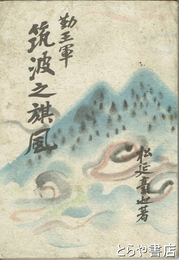 勤王軍
筑波之旗風
松延☐迦著
とらや書店